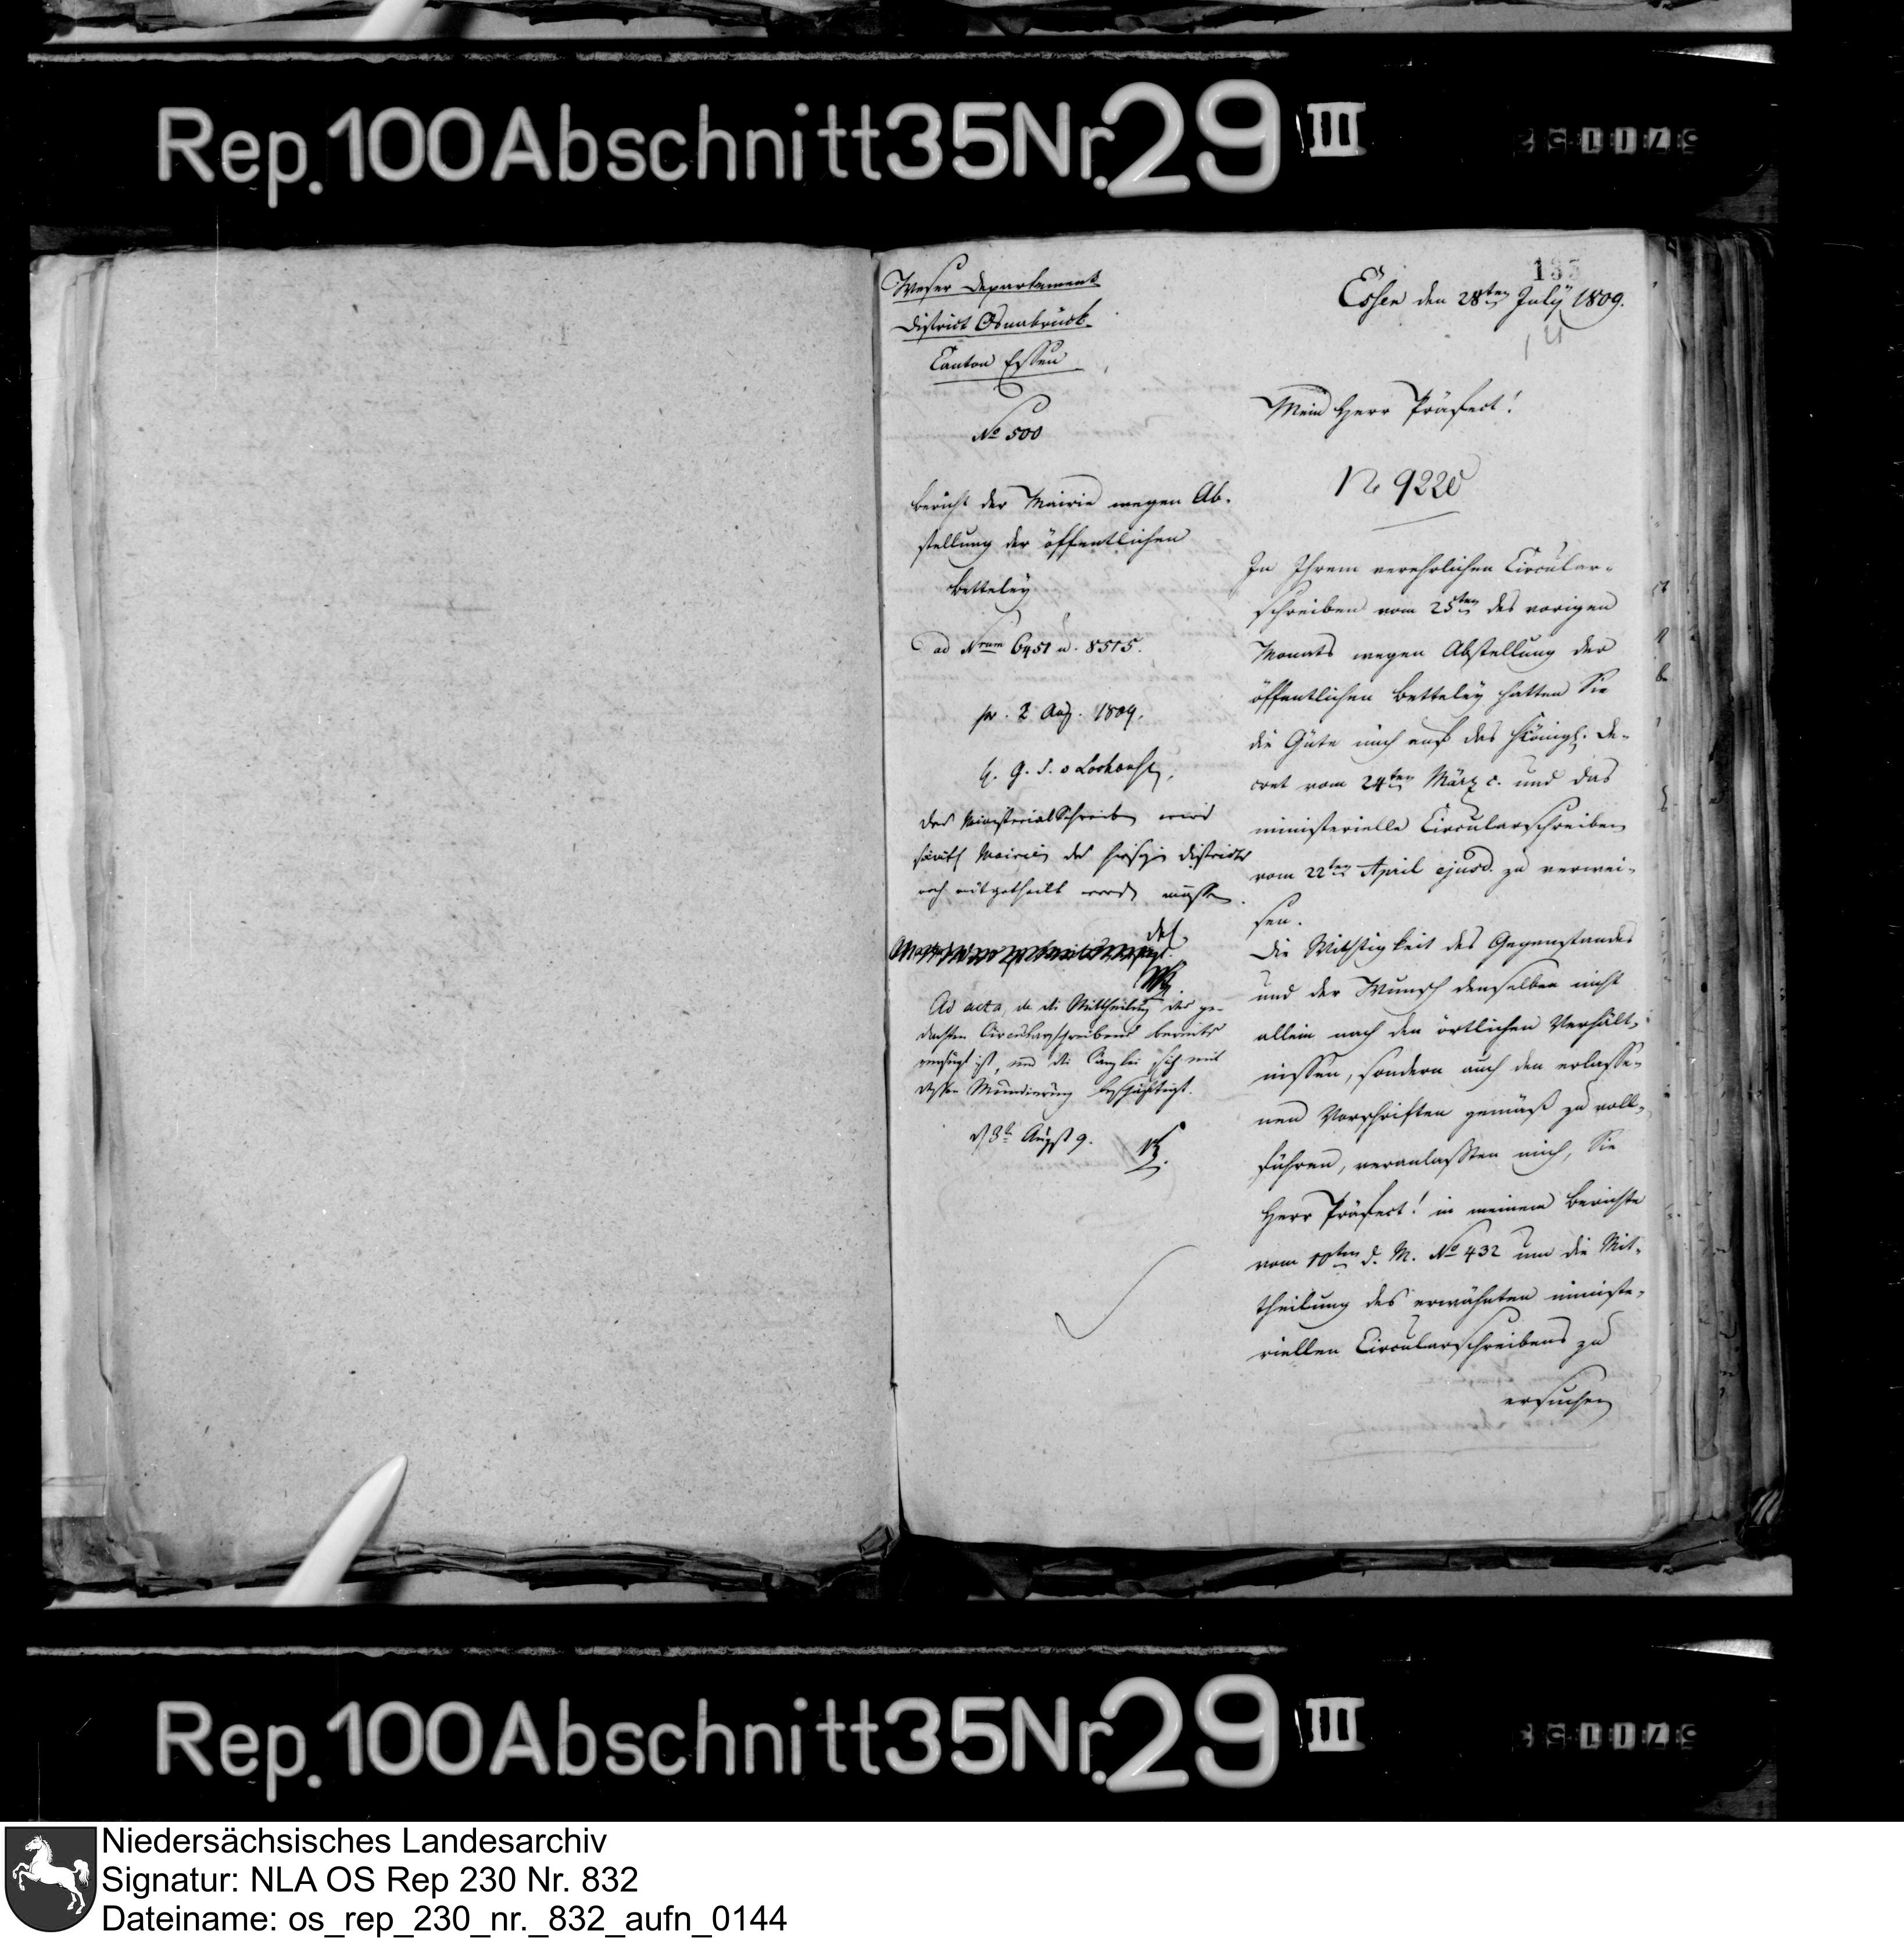 Rep. 100 Abschnitt 35 Nr. 29 III
Weser Departement
District Osnabrück
Canton Essen
No 500
Bericht der Mairie wegen Ab-
stellung der öffentlichen
Betteley
ad Nrum 6451 u. 8515.
pr. 2 Aug. 1809.
Das Ministerial Schreiben wird
sämtl Mairien des hiesigen Districts
noch mitgetheilt werden müssen.
Ad acta, da die Mittheilung des ge-
dachten Circularschreibens bereits
verfügt ist, und die Canzlei sich mit
dessen Mundirung beschäftigt.
d 3t August 9.
135
Essen den 28ten July 1809.
14
Mein Herr Präfect!
No 9220
In Ihrem verehrlichen Circular-
schreiben vom 25ten des vorigen
Monats wegen Abstellung der
öffentlichen Betteley hatten Sie
die Güte mich auf das Königl. De-
cret vom 24ten März c. und das
ministerielle Circularschreiben
vom 22ten April ejusd. zu verwei-
sen.
Die Wichtigkeit des Gegenstandes
und der Wunsch denselben nicht
allein nach den örtlichen Verhält-
nissen, sondern auch den erlasse-
nen Vorschriften gemäß zu voll-
führen, veranlaßten mich, Sie
Herr Präfect! in meinem Berichte
vom 10ten d. M. No 432 um die Mit-
theilung des erwähnten ministe-
riellen Circularschreibens zu
ersuchen
Rep. 100 Abschnitt 35 Nr. 29 III
Niedersächsisches Landesarchiv
Signatur: NLA OS Rep 230 Nr. 832
Dateiname: os_rep_230_nr._832_aufn_0144